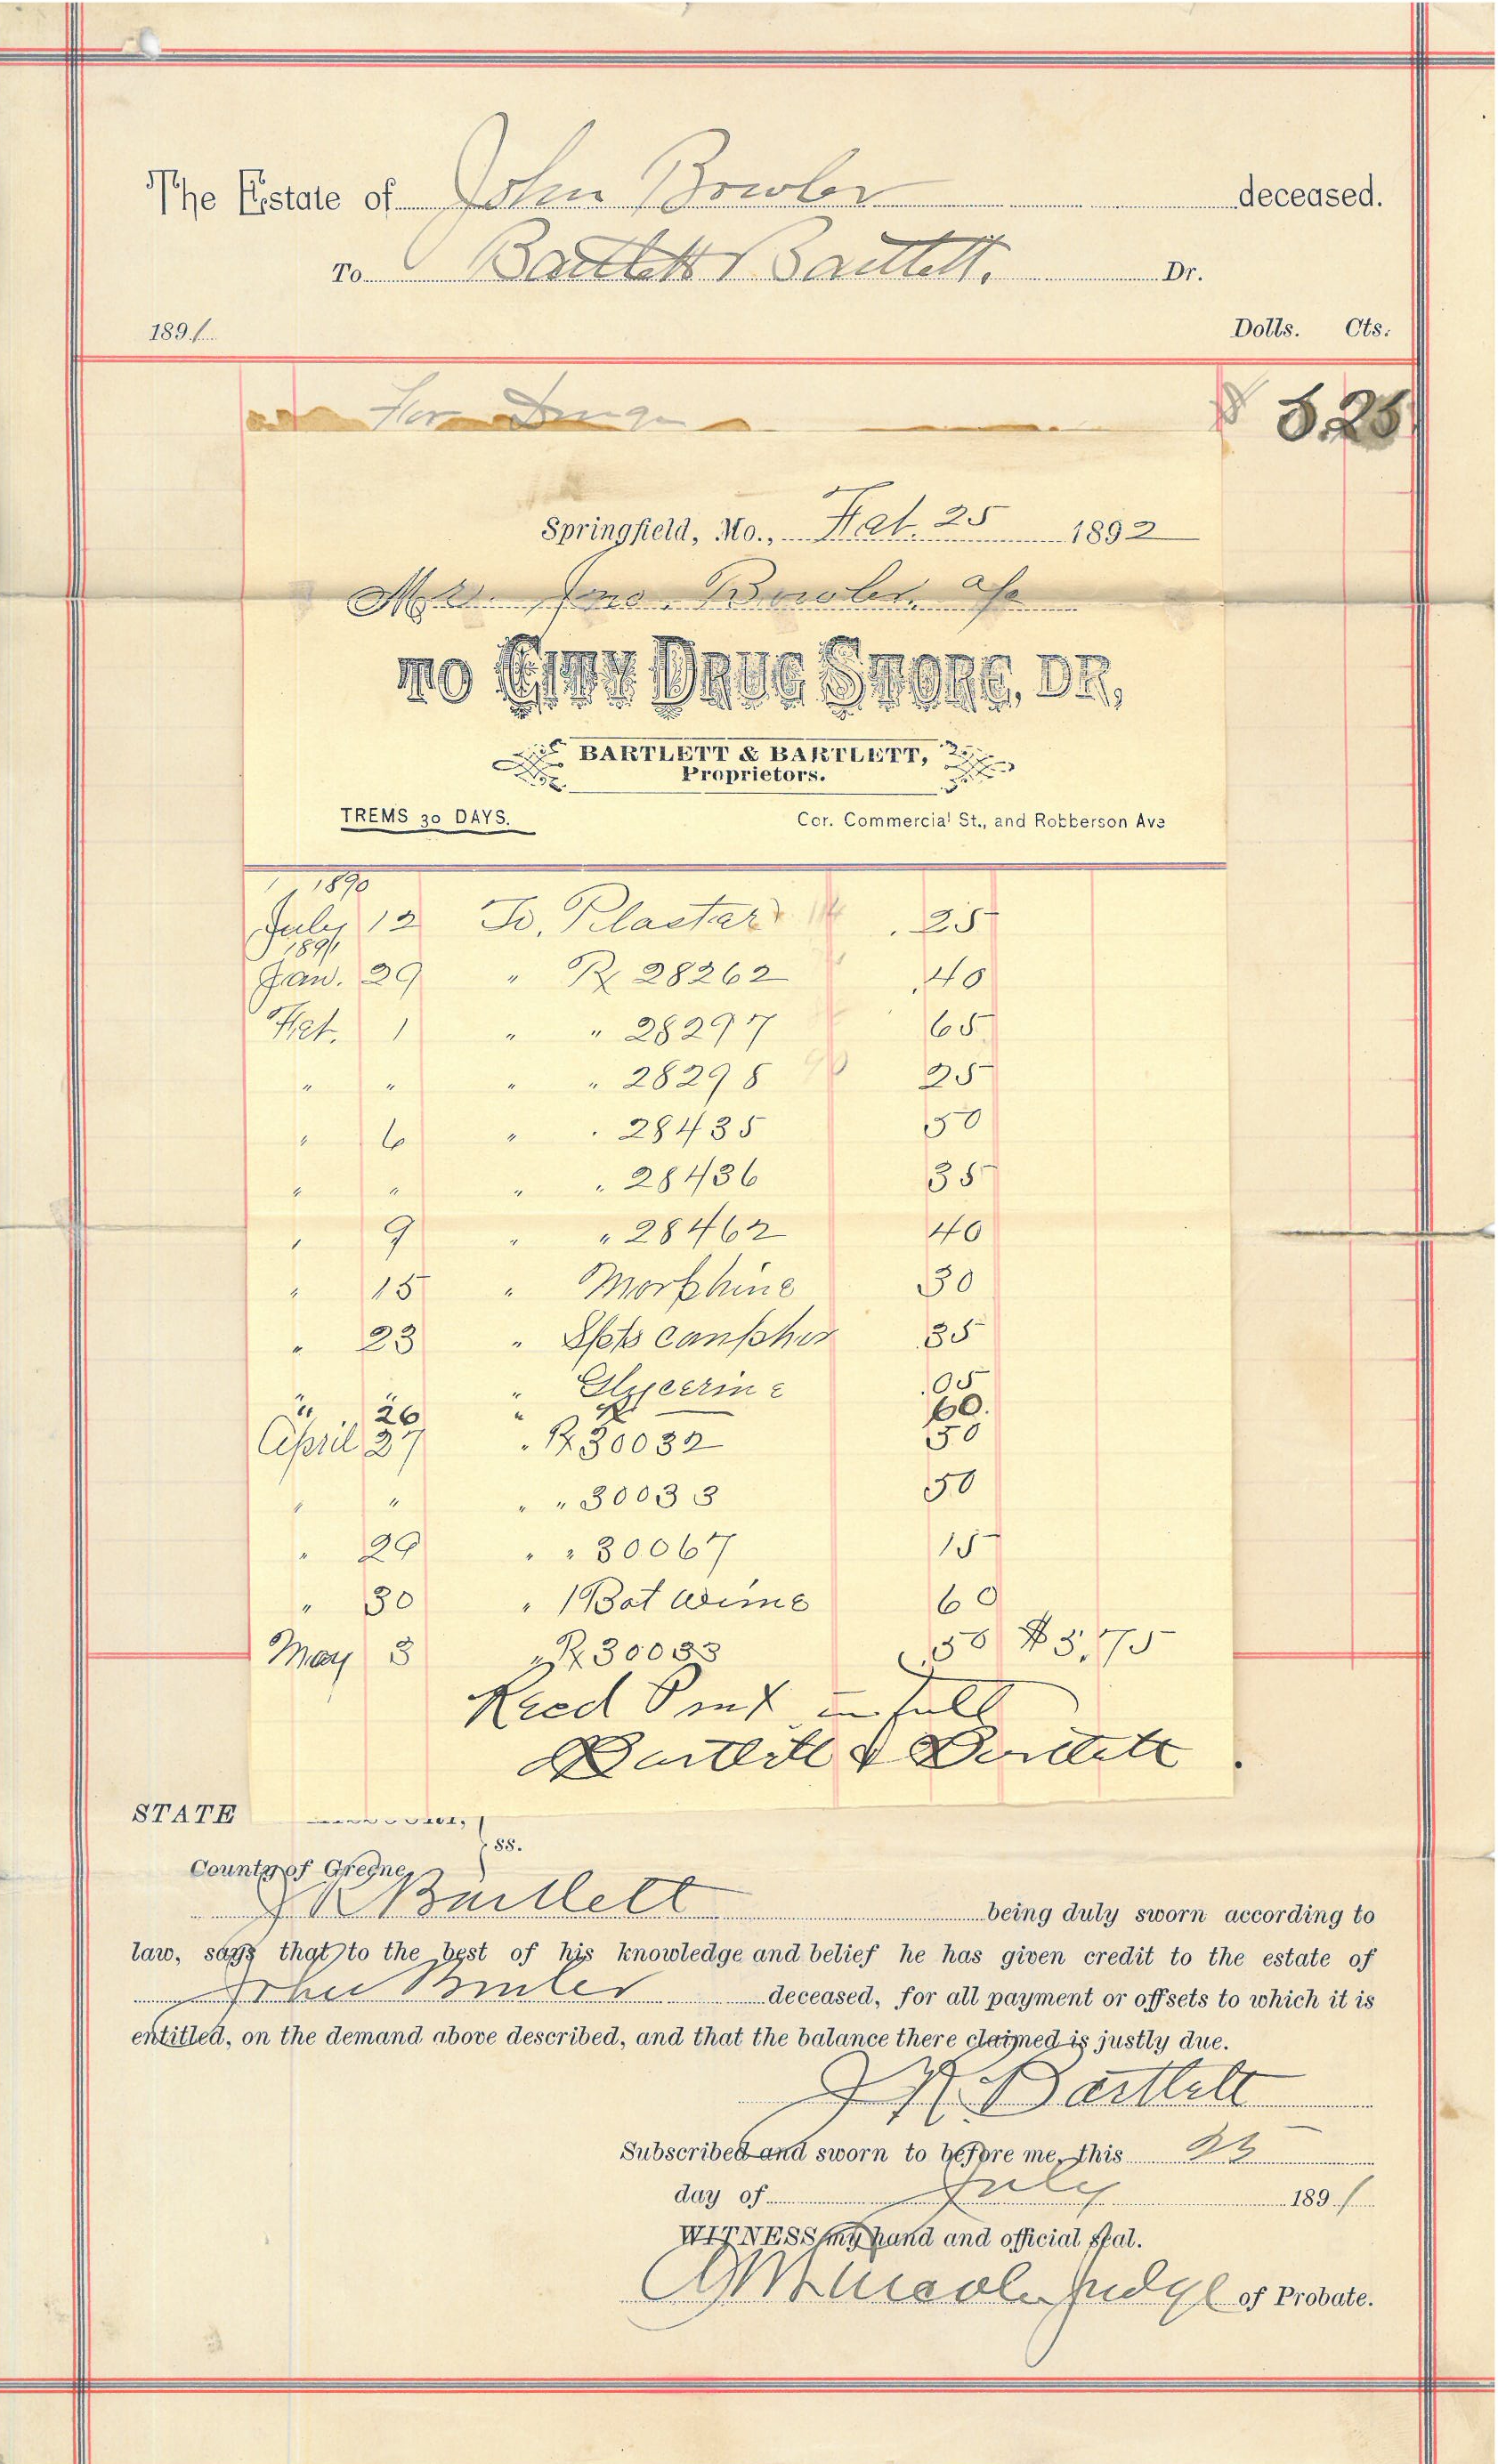 The Estate of John Bowler deceased.
To Bartlett & Bartlett. Dr.
1891 Dolls. Cts.
For Drugs $ 5.25
Springfield, Mo., Feb. 25 1892
M Jno. Bowler
TO CITY DRUG STORE, DR,
BARTLETT & BARTLETT,
Proprietors.
TREMS 30 DAYS. Cor. Commercial St., and Robberson Ave
1890
July 12 To, Plaster .25
1891
Jan. 29 " Rx 28262 .40
Feb. 1 " " 28297 65
" " " " 28298 25
" 6 " " 28435 50
" " " " 28436 35
" 9 " " 28462 40
" 15 " Morphine 30
" 23 " Spts camphor 35
" Glycerine .05
" 26 " Rx 60.
April 27 " Rx 30032 50
" " " " 30033 50
" 29 " " 30067 15
" 30 " 1 Bot Wine 60
May 3 " Rx 30083 50 $5.75
Recd Pmt in full
Bartlett & Bartlett
STATE
ss.
County of Greene,
Bartlett being duly sworn according to
law, says that to the best of his knowledge and belief he has given credit to the estate of
John Bowler deceased, for all payment or offsets to which it is
entitled, on the demand above described, and that the balance there claimed is justly due.
Bartlett
Subscribed and sworn to before me, this 23
day of July 1891
WITNESS my hand and official seal.
Judge of Probate.